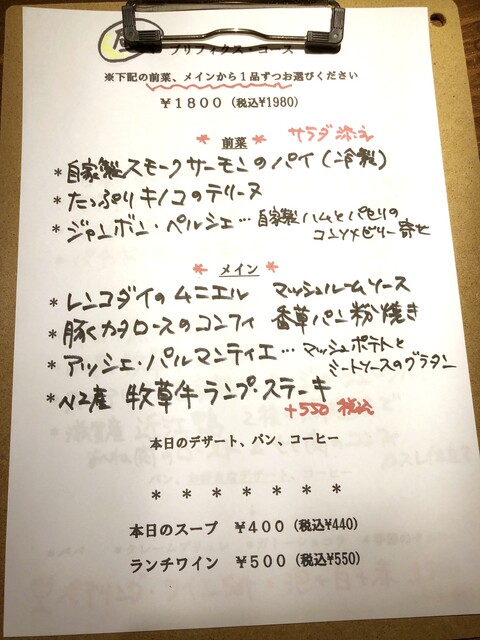 プリフィクス・コース
※下記の前菜、メインから１品ずつお選びください
￥１８００（税込¥1980）
* 前菜 * サラダ添え
*自家製スモークサーモンのパイ（冷製）
*たっぷりキノコのテリーヌ
*ジャンボン・ペルシェ…自家製ハムとパセリの
コンソメゼリー寄せ
* メイン *
*レンコダイのムニエル マッシュルームソース
*豚カタロースのコンフィ 香草パン粉焼き
*アッシェ・パルマンティエ…マッシュポテトと
ミートソースのグラタン
*NZ産 牧草牛ランプ・ステーキ
+550 税込
本日のデザート、パン、コーヒー
* * * * * * *
本日のスープ ￥４００（税込¥440）
ランチワイン ￥５００（税込¥550）